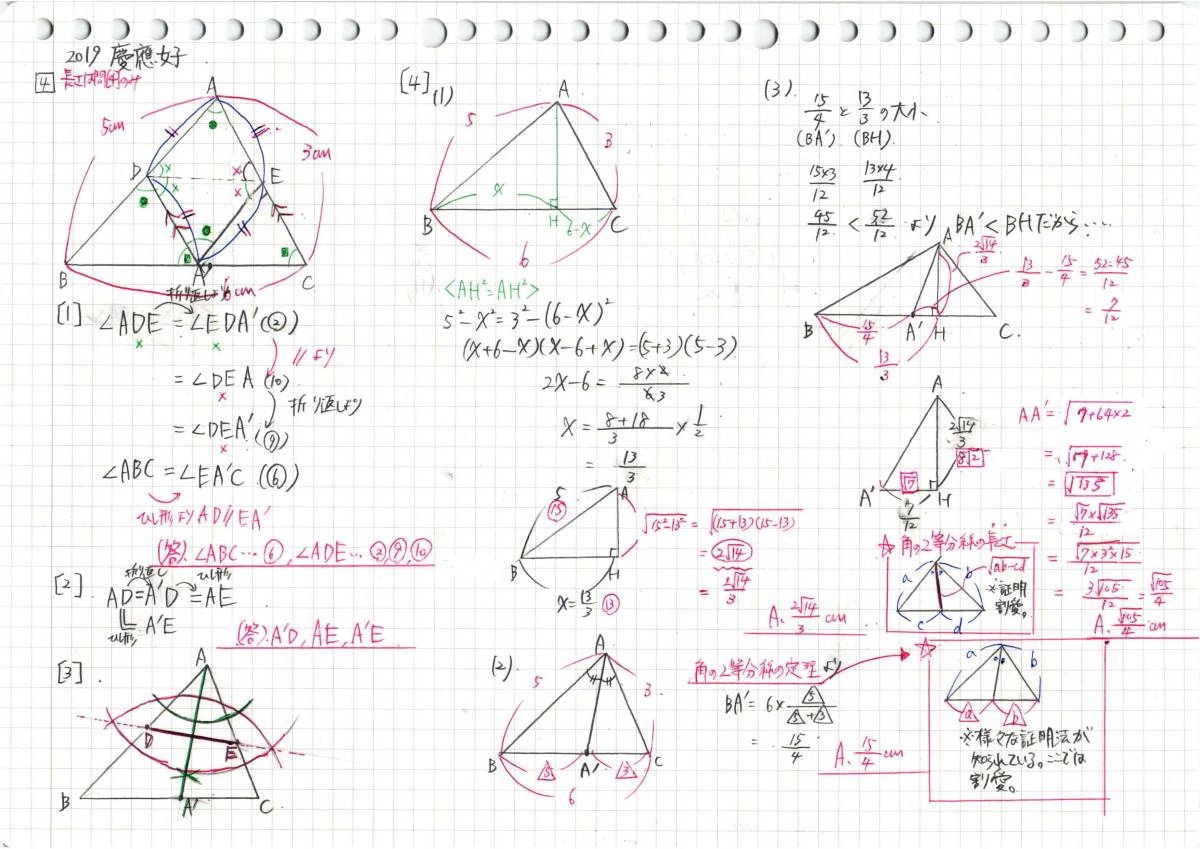 2019 慶應女子
4 長さは問[4]のみ
A
5cm
3cm
D
E
B
A'
C
折り返しより
6cm
[1] ∠ADE = ∠EDA' (②)
// より
= ∠DEA (⑩)
折り返しより
= ∠DEA' (⑨)
∠ABC = ∠EA'C (⑥)
ひし形よりAD//EA'
(答). ∠ABC…⑥, ∠ADE…②,⑨,⑩
[2].
折り返し
ひし形
AD=A'D=AE
ひし形
A'E
(答). A'D, AE, A'E
[3].
A
D
E
B
A'
C
[4] (1)
A
5
3
x
H
6-x
B
C
6
<AH²=AH²>
5²-x²=3²-(6-x)²
(x+6-x)(x-6+x)=(5+3)(5-3)
2x-6= 8×2/6 3
x= 8+18/3 ×1/2
= 13/3
5
⑮
A
B
H
x=13/3 ⑬
√15²-13² = √(15+13)(15-13)
= 2√14
= 2√14/3
A. 2√14/3 cm
(2).
A
5
3
B
5
A'
3
C
6
角の2等分線の定理より
BA'=6× 5/5+3
= 15/4
A. 15/4 cm
(3).
15/4 と 13/3 の大小
(BA') (BH).
15×3/12 13×4/12
45/12 < 52/12 より BA'<BHだから…
A
2√14/3
13/3 - 15/4 = 52-45/12
= 7/12
B
15/4
A'
H
C.
13/3
A
2√14/3
8√2
A'
√7
H
7/12
AA'= √7+64×2
= √7+128
= √135
= √7×√135/12
= √7×3²×15/12
= 3√105/12 = √105/4
A. √105/4 cm
☆角の2等分線の長さ
a
b
√ab-cd
c
d
※証明割愛。
☆
a
b
a
b
※様々な証明法が
知られている。ここでは
割愛。